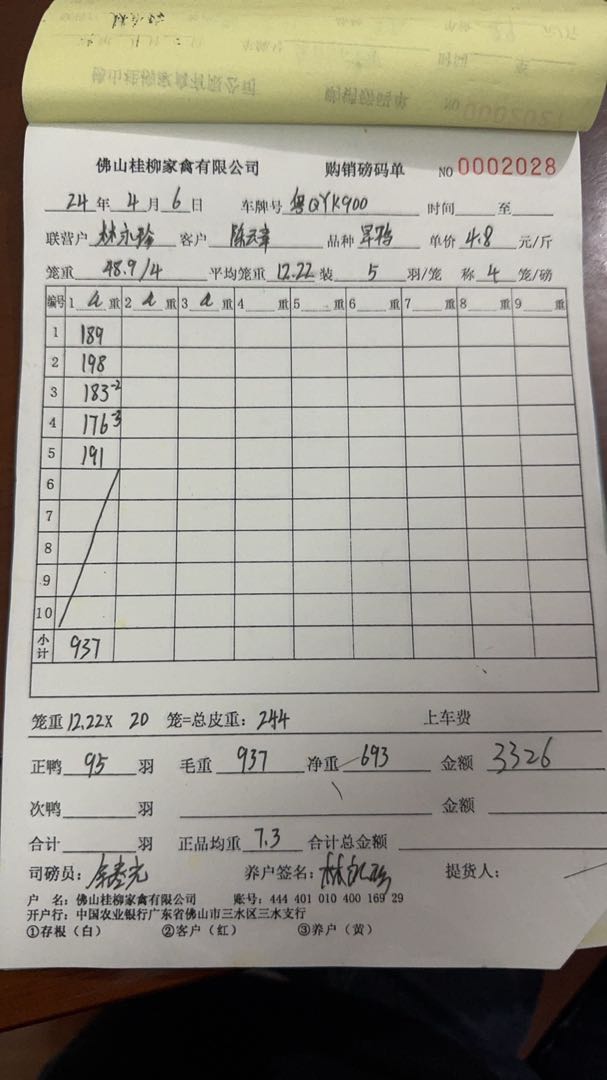 佛山桂柳家禽有限公司 购销磅码单 NO 0002028
24年4月6日 车牌号 粤QYK900 时间 至
联营户 林永珍 客户 陈云章 品种 单价 4.8 元/斤
笼重 48.9/4 平均笼重 12.22 装 5 羽/笼 称 4 笼/磅
编号 1 重 2 重 3 重 4 重 5 重 6 重 7 重 8 重 9 重
1 189
2 198
3 183-2
4 176-3
5 191
6
7
8
9
10
小计 937
笼重 12.22X 20 笼=总皮重: 244 上车费
正鸭 95 羽 毛重 937 净重 693 金额 3326
次鸭 羽 金额
合计 羽 正品均重 7.3 合计总金额
司磅员: 养户签名: 提货人:
户 名: 佛山桂柳家禽有限公司 账号: 444 401 010 400 169 29
开户行: 中国农业银行广东省佛山市三水区三水支行
①存根(白) ②客户(红) ③养户(黄)